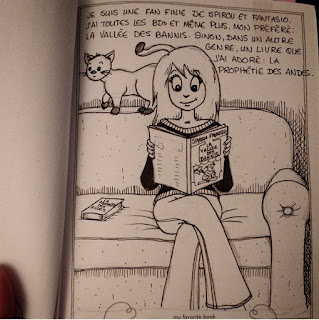 JE SUIS UNE FAN FINIE DE SPIROU ET FANTASIO.
J'AI TOUTES LES BDS ET MÊME PLUS. MON PRÉFÉRÉ:
LA VALLÉE DES BANNIS. SINON, DANS UN AUTRE
GENRE, UN LIVRE QUE
J'AI ADORÉ: LA
PROPHÉTIE DES ANDES.
LA
VALLÉE
DES
BANNIS
my favorite book